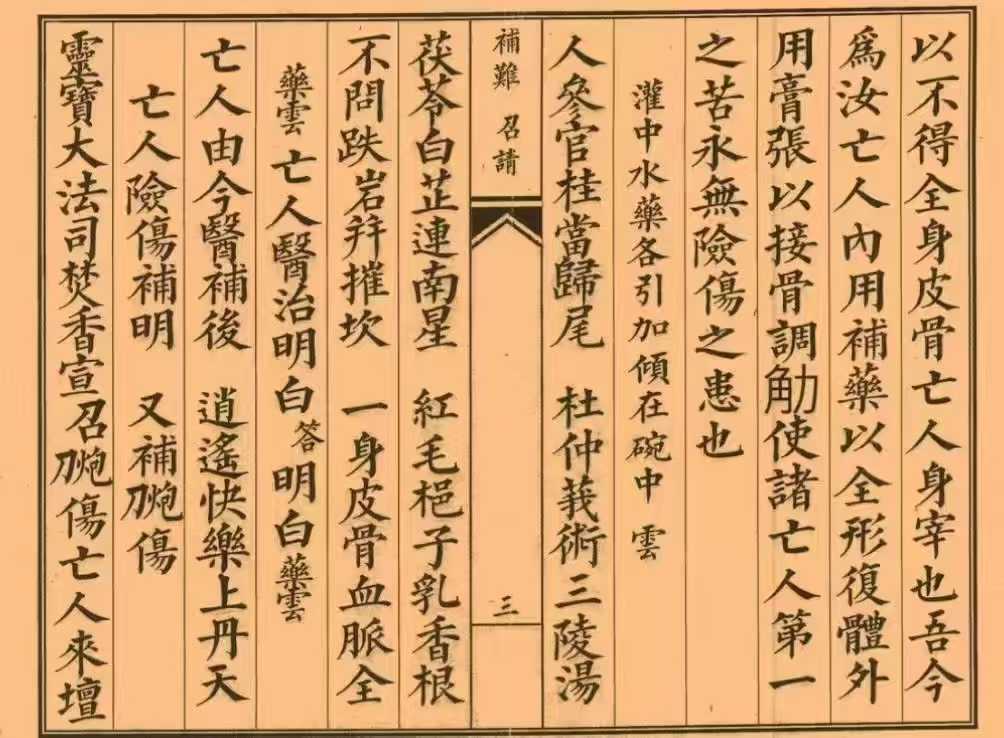 以不得全身皮骨亡人身宰也吾今
爲汝亡人內用補藥以全形復體外
用膏張以接骨調觔使諸亡人第一
之苦永無險傷之患也
灌中水藥各引加傾在碗中 雲
人參官桂當歸尾 杜仲莪術三陵湯
補難 召請
三
茯苓白芷連南星 紅毛梔子乳香根
不問跌岩并摧坎 一身皮骨血脈全
藥雲 亡人醫治明白 答 明白 藥雲
亡人由今醫補後 逍遙快樂上丹天
亡人險傷補明 又補刀炮傷
靈寶大法司焚香宣召刀炮傷亡人來壇